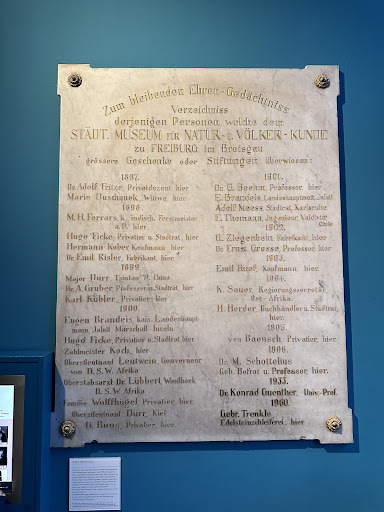 Zum bleibenden Ehren-Gedächtniss
Verzeichniss
derjenigen Personen welche dem
STÄDT. MUSEUM FÜR NATUR- U. VÖLKER-KUNDE
zu FREIBURG im Breisgau
grössere Geschenke oder Stiftungen überwiesen:
1897.
Dr. Adolf Fritze, Privatdozent, hier
Marie Duschanek, Witwe, hier
1898.
M. H. Ferrars, k. indisch. Forstmeister
a. D. hier
Hugo Ficke, Privatier u. Stadtrat, hier
Hermann Kaufmann, hier
Dr. Emil Risler, Fabrikant, hier
1899.
Major Dürr, Tsintau China
Dr. A. Gruber, Professor u. Stadtrat, hier
Karl Kübler, Privatier, hier
1900.
Eugen Brandeis, Kais. Landeshaupt-
mann, Jaluit Marschall-Inseln
Hugo Ficke, Privatier u. Stadtrat, hier
Zahlmeister Koch, hier
Oberstleutnant Leutwein, Gouverneur
von D. S. W. Afrika
Oberstabsarzt Dr. Lübbert, Windhoek
D. S. W. Afrika
Familie Wolfhügel, Privatier, hier
Oberstleutnant Dürr, Kiel
G. Privatier, hier
1901.
Dr. G. Boehm, Professor, hier
E. Brandeis, Landeshauptmann, Jaluit
Adolf Meess, Stadtrat, Karlsruhe
E. Thomann, Ingenieur, Valdivia
Chile
1902.
G. Ziegenbein, Fabrikant, hier
Dr. Ernst Grosse, Professor, hier
1903.
Emil Kaufmann, hier
1904.
K. Sauer, Regierungssecretär
Ost-Afrika.
H. Herder, Buchhändler u. Stadtrat,
hier.
1905.
von Baensch, Privatier, hier
1906.
Dr. M. Schottelius
Geh. Hofrat u. Professor, hier.
1933.
Dr. Konrad Guenther, Univ.-Prof.
1960.
Gebr. Trenkle
Edelsteinschleiferei, hier